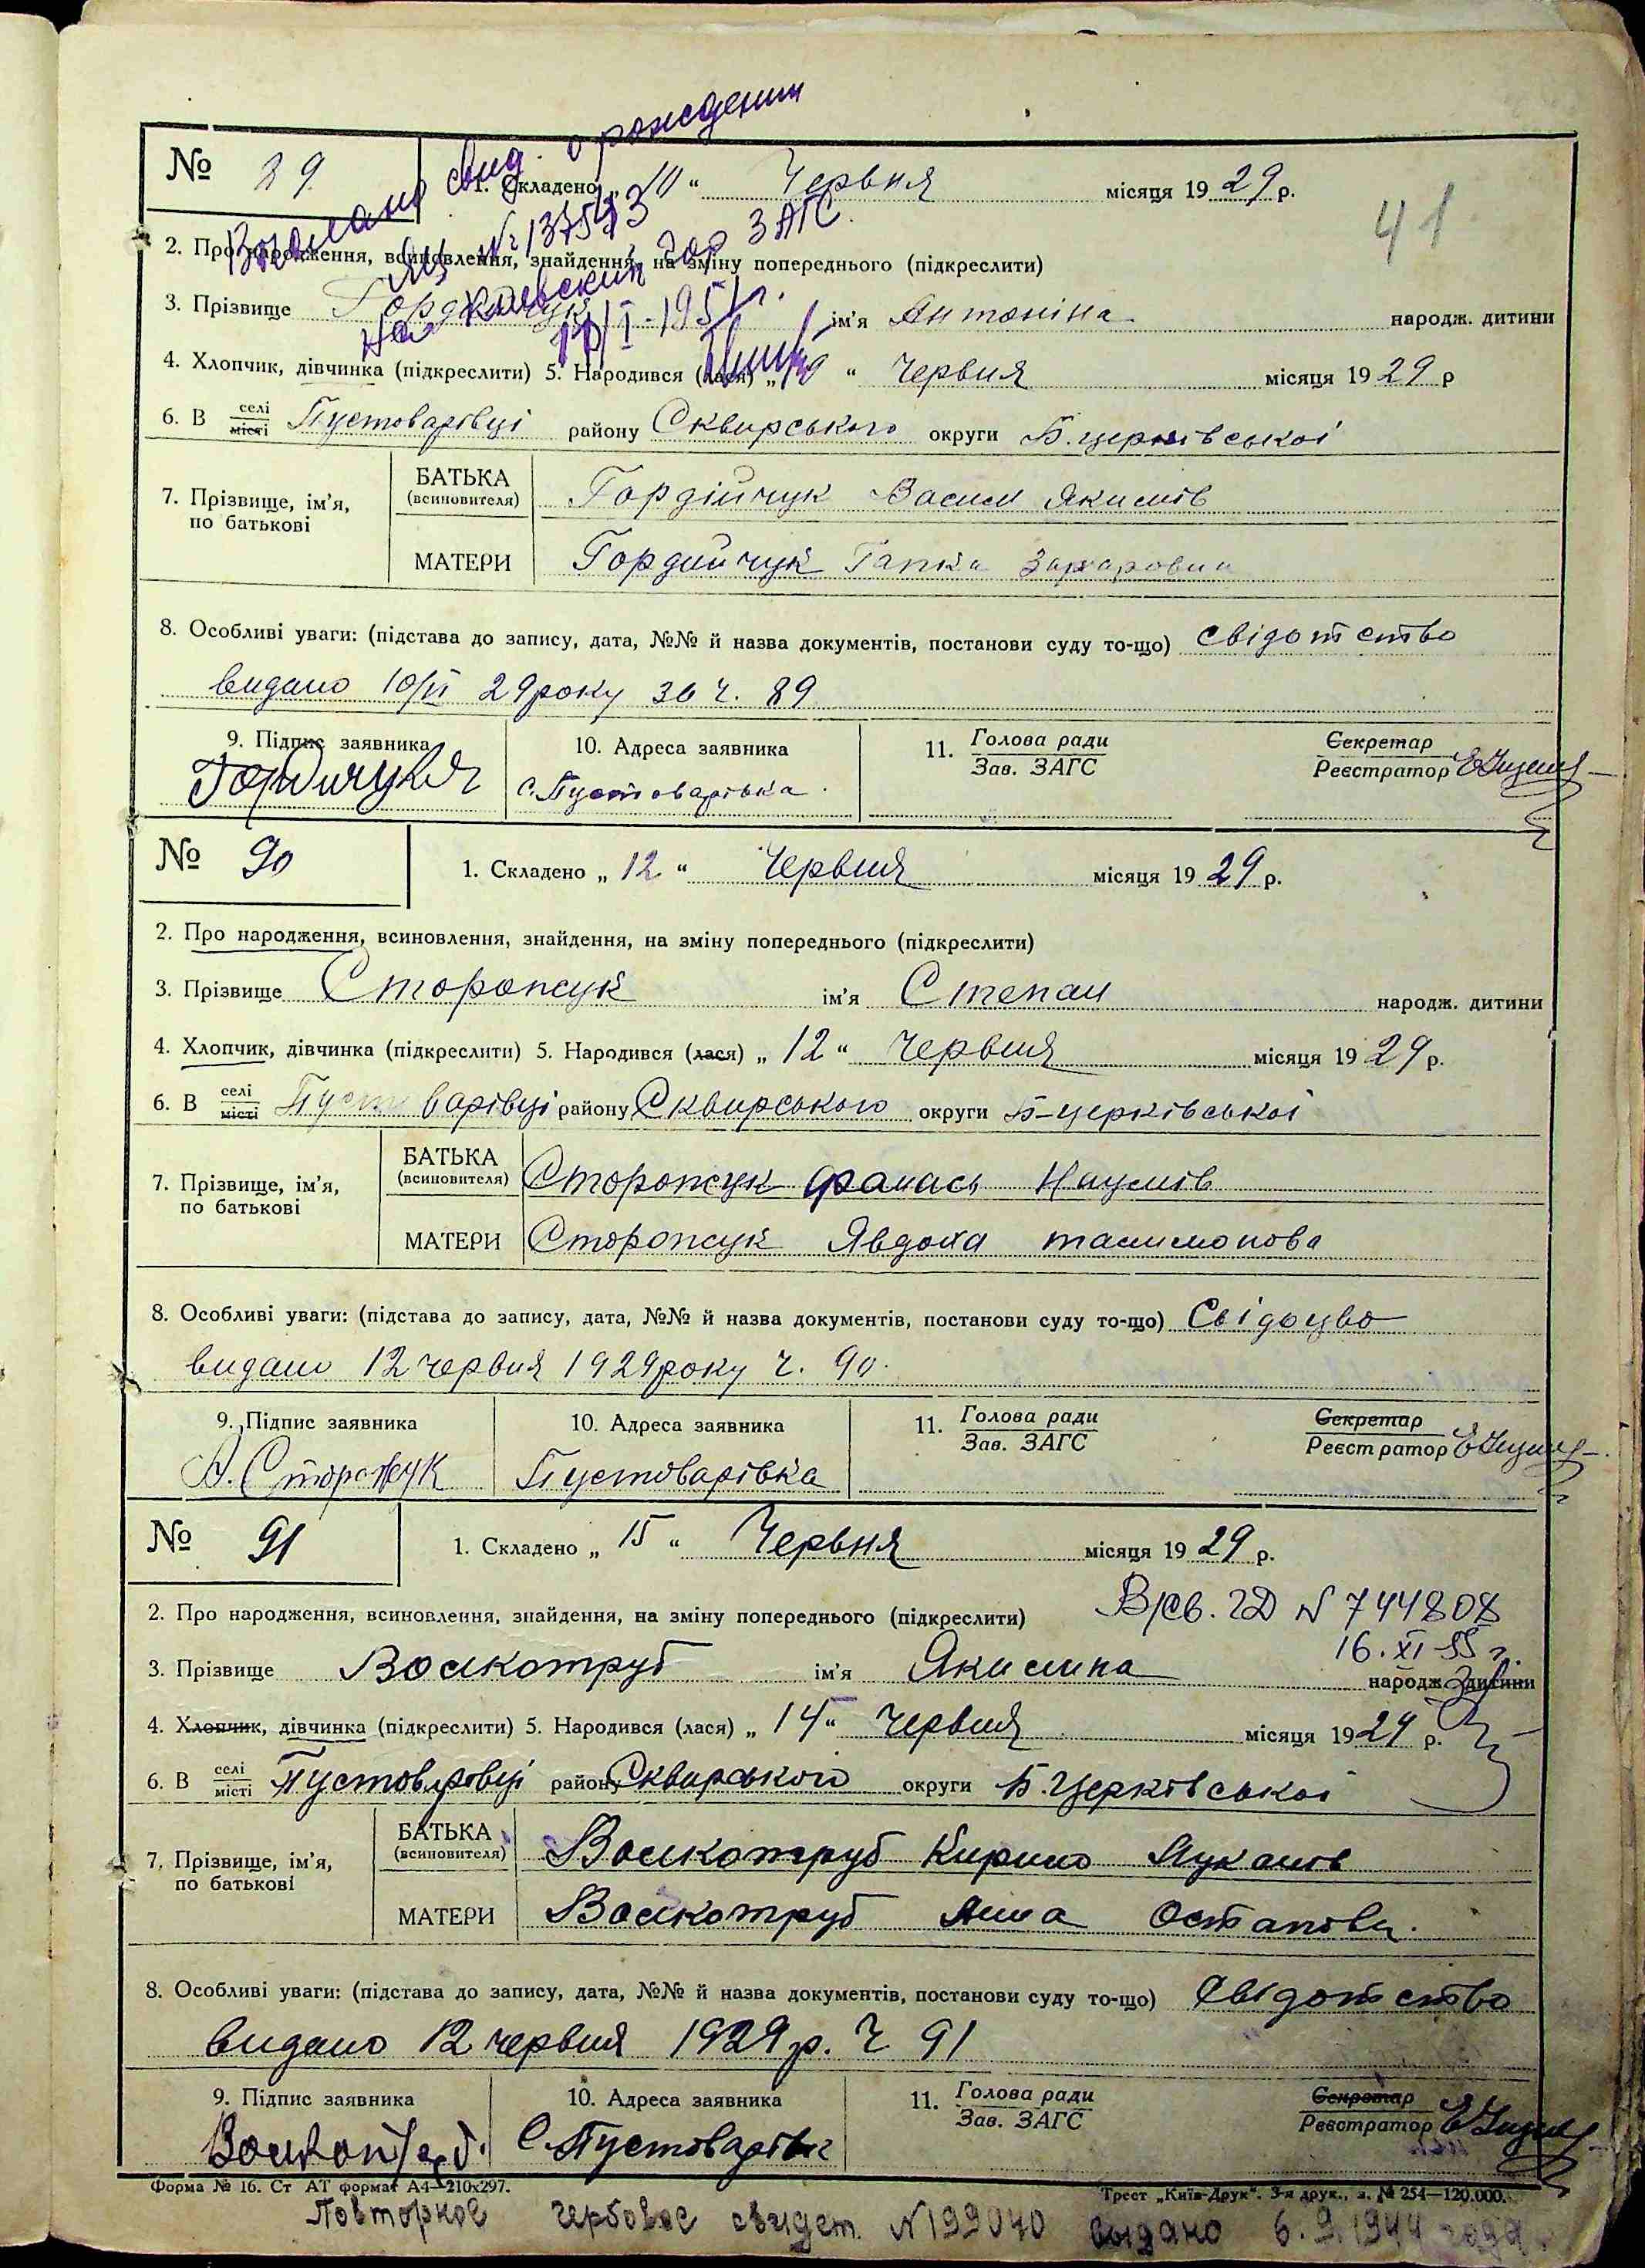 о рождении
Выслано свид.
ЯЦ № 137543
на Киевский гор ЗАГС.
1951 г.
41
№ 89 1. Складено „ 10 “ Червня місяця 19 29 р.
2. Про народження, всиновлення, знайдення, на зміну попереднього (підкреслити)
3. Прізвище Гордійчук ім'я Антоніна народж. дитини
4. Хлопчик, дівчинка (підкреслити) 5. Народився (лася) „ “ Червня місяця 19 29 р
6. В селі місті Пустоварівці району Сквирського округи Б. церківської
7. Прізвище, ім'я, по батькові
БАТЬКА (всиновителя) Гордійчук Василь Якимів
МАТЕРИ Гордийчук Гапка Захаровна
8. Особливі уваги: (підстава до запису, дата, №№ й назва документів, постанови суду то-що) свідотство
видано 10/VI 29 року за ч. 89
9. Підпис заявника 10. Адреса заявника 11. Голова ради Зав. ЗАГС Секретар Реєстратор
с. Пустоварівка
№ 90 1. Складено „ 12 “ Червня місяця 19 29 р.
2. Про народження, всиновлення, знайдення, на зміну попереднього (підкреслити)
3. Прізвище Сторожук ім'я Степан народж. дитини
4. Хлопчик, дівчинка (підкреслити) 5. Народився (лася) „ 12 “ Червня місяця 19 29 р.
6. В селі місті Пустоварівці району Сквирського округи Б-церківської
7. Прізвище, ім'я, по батькові
БАТЬКА (всиновителя) Сторожук Фанась Наумів
МАТЕРИ Сторожук Явдоха
8. Особливі уваги: (підстава до запису, дата, №№ й назва документів, постанови суду то-що) Свідоцво
видано 12 червня 1929 року ч. 90.
9. Підпис заявника 10. Адреса заявника 11. Голова ради Зав. ЗАГС Секретар Реєстратор
Сторожук Пустоварівка
№ 91 1. Складено „ 15 “ Червня місяця 19 29 р.
2. Про народження, всиновлення, знайдення, на зміну попереднього (підкреслити) В/св. ГД N 744808
16. XI 55 г.
3. Прізвище Вовкотруб ім'я Якилина народж. дитини
4. Хлопчик, дівчинка (підкреслити) 5. Народився (лася) „ 14 “ червня місяця 19 29 р.
6. В селі місті Пустоварівці району Сквирського округи Б. Церківської
7. Прізвище, ім'я, по батькові
БАТЬКА (всиновителя) Вовкотруб Кирило Лукашів
МАТЕРИ Вовкотруб Анна Остапова.
8. Особливі уваги: (підстава до запису, дата, №№ й назва документів, постанови суду то-що) Свідотство
видано 12 червня 1929 р. ч 91
9. Підпис заявника 10. Адреса заявника 11. Голова ради Зав. ЗАГС Секретар Реєстратор
С. Пустоварівка
Форма № 16. Ст АТ формат А4—210х297. Трест „Київ-Друк“. 3-я друк., з. № 254—120.000.
Повторное гербовое свидет. N 199040 выдано 6.9.1944 года.